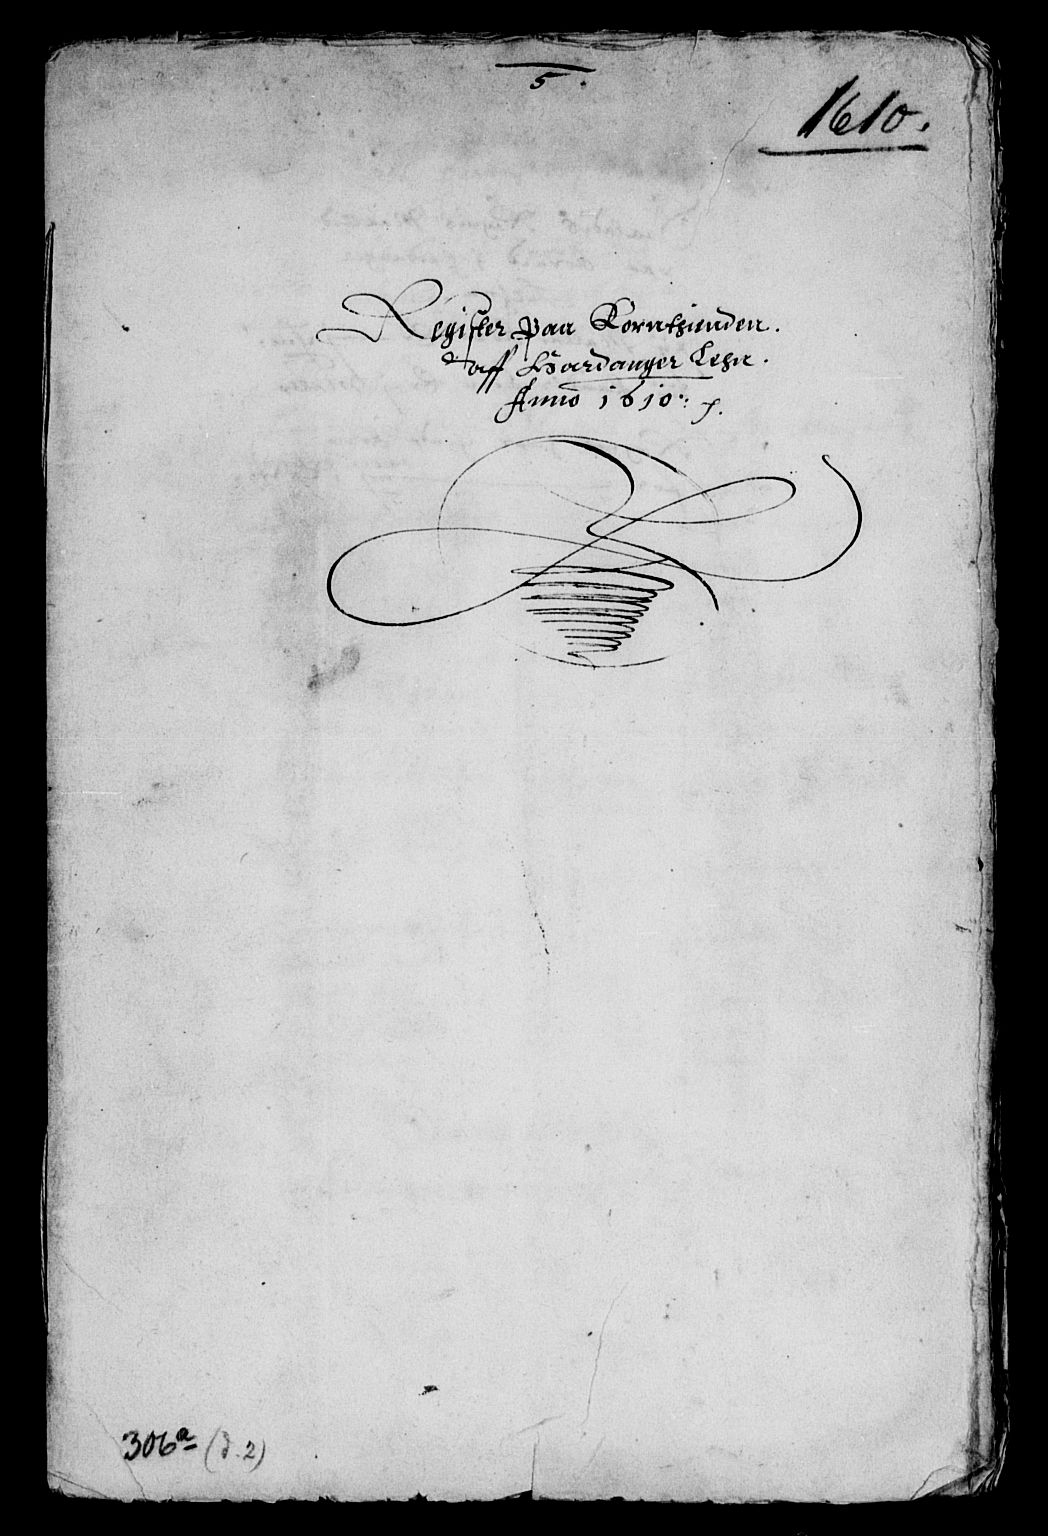 5.
1610.
Register paa Kornthienden.
aff Hardanger Lehn.
Anno 1610.
306a (d.2)